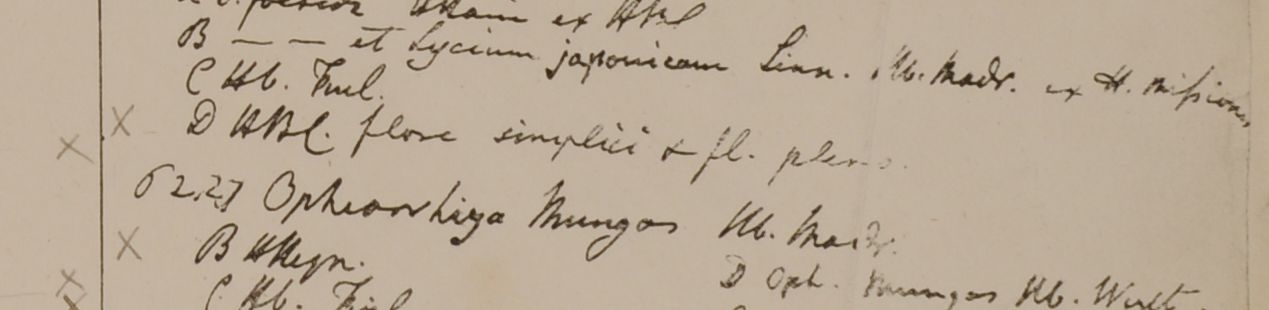 ex HBC
B — — et Lycium japonicum Linn. Hb. Madr. ex H. missionis
C Hb. Finl.
X D HBC. flore simplici & fl. pleno.
X
6227 Ophiorrhiza Mungos Hb. Madr.
X B HHeyn.
D Oph. Mungos Hb. Wight
X C Hb. Finl
X